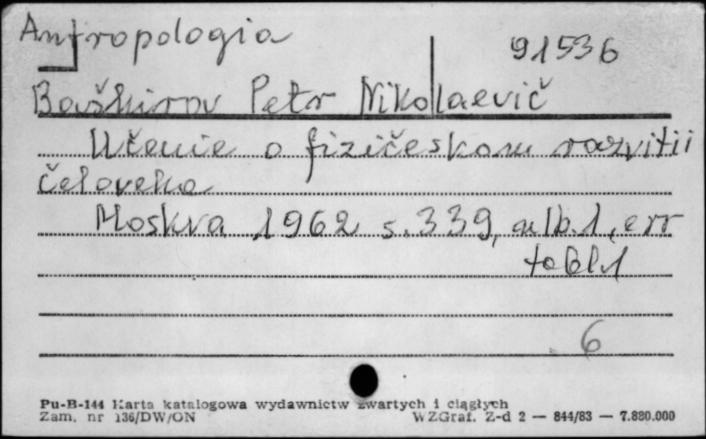 Antropologia
91536
Baškirov Petr Nikolaevič
Učenie o fizičeskom razvitii
čeloveka
Moskva 1962 s. 339, alb. 1, err
tabl. 1
6
Pu-B-144 Karta katalogowa wydawnictw zwartych i ciągłych
Zam. nr 136/DW/ON WZGraf. Z-d 2 — 844/83 — 7.880.000